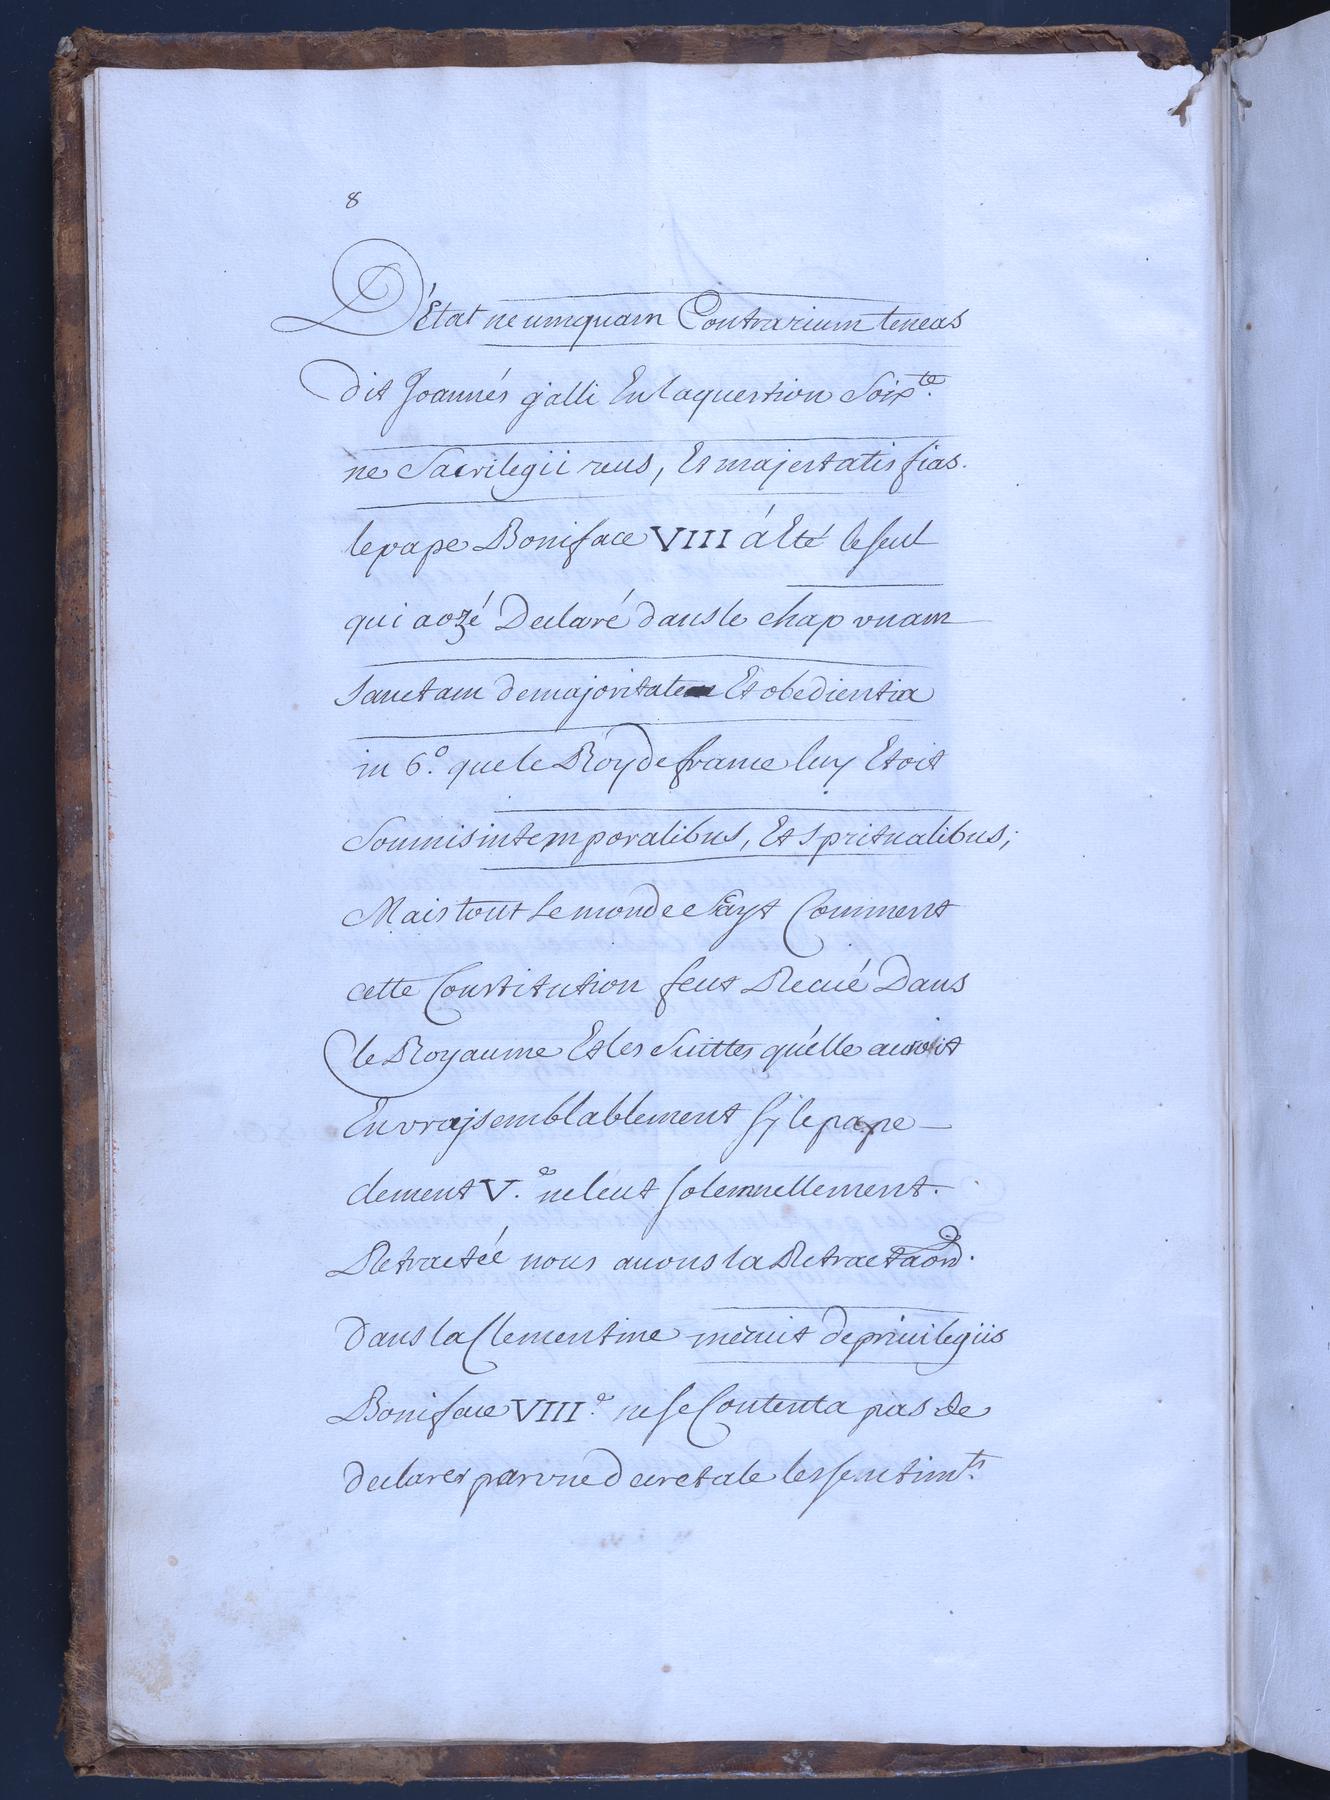 8
D'État ne umquam Contrarium teneas
dit Joannés galli En la question Soix.te
ne Sacrilegii reus, Et majestatis fias.
le pape Boniface VIII á Eté le seul
qui a ozé Declaré dans le chap vnam
sanctam de majoritate Et obedientia
in 6.o que le Roy de france luy Etoit
Soumis in temporalibus, Et spritualibus;
Mais tout Le monde sayt Comment
cette Constitution feut Recüé Dans
le Royaume Et les Suittes qu'elle auroit
En vrajsemblablement sy le pape
clement V.e ne leut solemnellement.
Retractéé nous auons la Retractaõn.
Dans la Clementine meruit de priuilegiis
Boniface VIII.e ne se Contenta pas de
declarer par vne decretale les sentim.ts